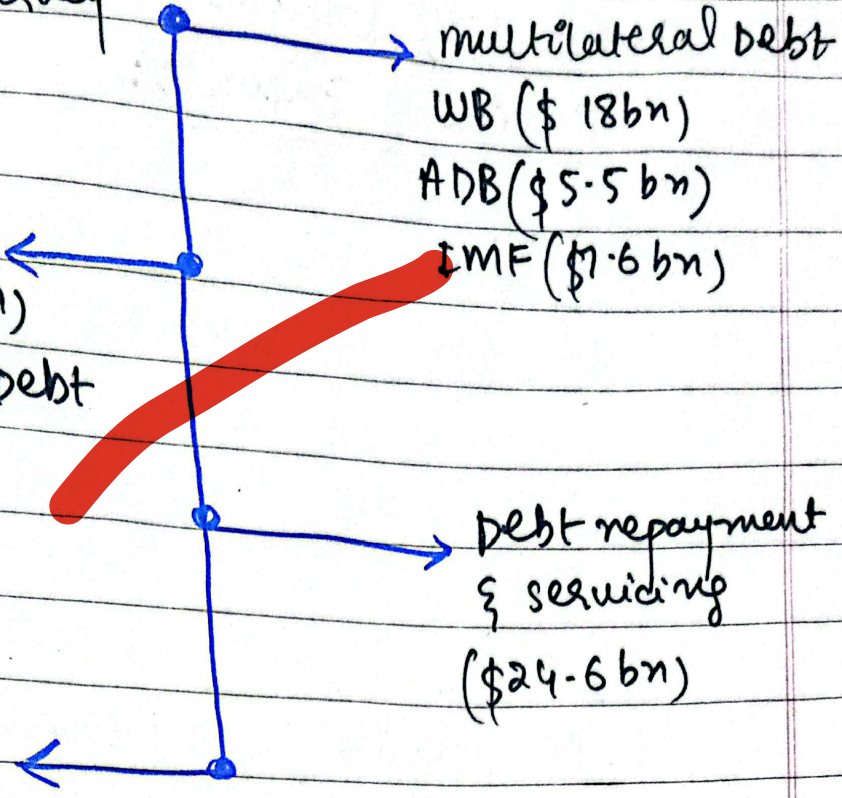 multilateral Debt
WB ($ 18bn)
ADB($5.5 bn)
IMF ($7.6 bn)
Debt
Debt repayment
& servicing
($24.6 bn)